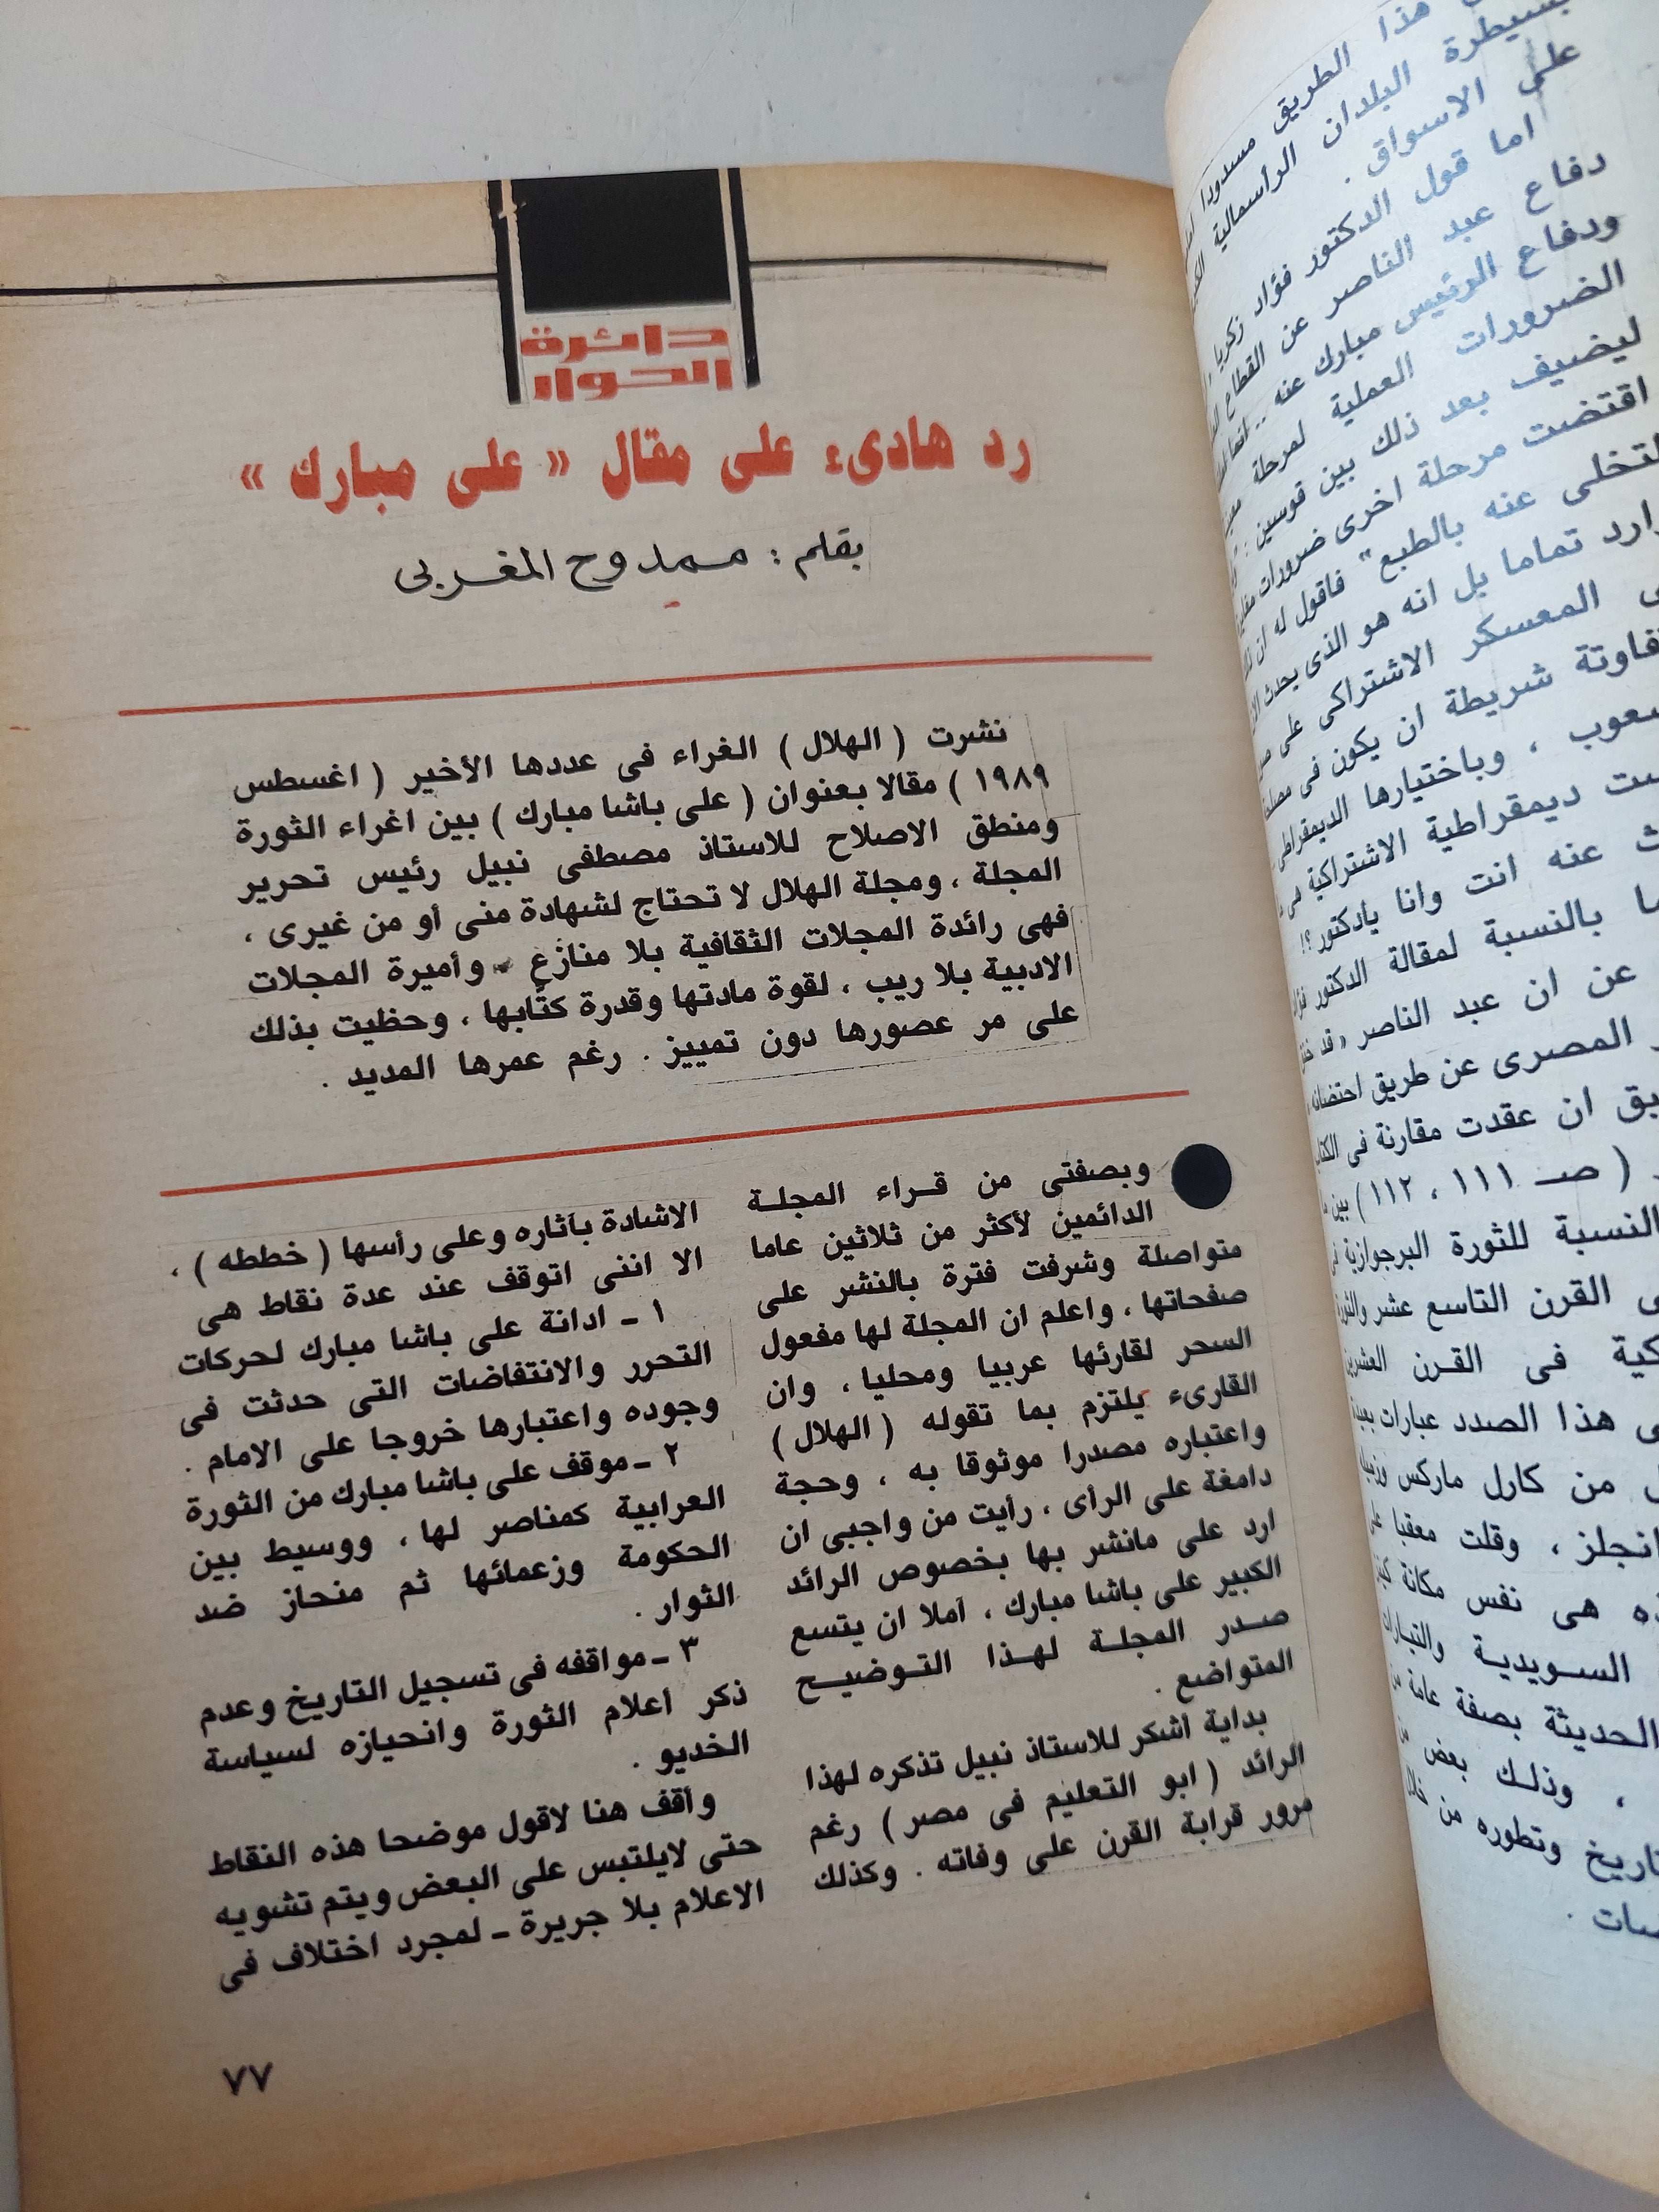 دائرة
الحوار
رد هادىء على مقال « على مبارك »
بقلم : ممدوح المغربى
نشرت ( الهلال ) الغراء فى عددها الأخير ( اغسطس
١٩٨٩ ) مقالا بعنوان ( على باشا مبارك ) بين اغراء الثورة
ومنطق الاصلاح للاستاذ مصطفى نبيل رئيس تحرير
المجلة ، ومجلة الهلال لا تحتاج لشهادة منى أو من غيرى ،
فهى رائدة المجلات الثقافية بلا منازع وأميرة المجلات
الادبية بلا ريب ، لقوة مادتها وقدرة كتابها ، وحظيت بذلك
على مر عصورها دون تمييز . رغم عمرها المديد .
وبصفتى من قراء المجلة
الدائمين لأكثر من ثلاثين عاما
متواصلة وشرفت فترة بالنشر على
صفحاتها ، واعلم ان المجلة لها مفعول
السحر لقارئها عربيا ومحليا ، وان
القارىء يلتزم بما تقوله ( الهلال )
واعتباره مصدرا موثوقا به ، وحجة
دامغة على الرأى ، رأيت من واجبى ان
ارد على مانشر بها بخصوص الرائد
الكبير على باشا مبارك ، آملا ان يتسع
صدر المجلة لهذا التوضيح
المتواضع .
بداية أشكر للاستاذ نبيل تذكره لهذا
الرائد ( ابو التعليم فى مصر ) رغم
مرور قرابة القرن على وفاته . وكذلك
الاشادة بآثاره وعلى رأسها ( خططه ) ،
الا اننى اتوقف عند عدة نقاط هى
١ ـ ادانة على باشا مبارك لحركات
التحرر والانتفاضات التى حدثت فى
وجوده واعتبارها خروجا على الامام .
٢ ـ موقف على باشا مبارك من الثورة
العرابية كمناصر لها ، ووسيط بين
الحكومة وزعمائها ثم منحاز ضد
الثوار .
٣ ـ مواقفه فى تسجيل التاريخ وعدم
ذكر أعلام الثورة وانحيازه لسياسة
الخديو .
وأقف هنا لاقول موضحا هذه النقاط
حتى لايلتبس على البعض ويتم تشويه
الاعلام بلا جريرة ـ لمجرد اختلاف فى
٧٧
هذا الطريق مسدودا
بسيطرة البلدان الرأسمالية
على الاسواق .
اما قول الدكتور فؤاد زكريا
دفاع عبد الناصر عن القطاع
ودفاع الرئيس مبارك عنه ..
الضرورات العملية لمرحلة
ليضيف بعد ذلك بين قوسين :
اقتضت مرحلة اخرى ضرورات
التخلى عنه بالطبع" فاقول له ان
وارد تماما بل انه هو الذى يحدث
المعسكر الاشتراكى على
شريطة ان يكون فى
، وباختيارها
ديمقراطية الاشتراكية
عنه انت وانا يادكتور ؟!
بالنسبة لمقالة الدكتور
عن ان عبد الناصر « قد
المصرى عن طريق احتضانه
ان عقدت مقارنة فى
( صـ ١١١ ، ١١٢ ) بين
النسبة للثورة البرجوازية
القرن التاسع عشر
فى القرن العشرين
هذا الصدد عبارات
من كارل ماركس وزميله
انجلز ، وقلت معقبا
هى نفس مكانة
السويدية والتيارات
الحديثة بصفة عامة
، وذلك بعض
وتطوره من